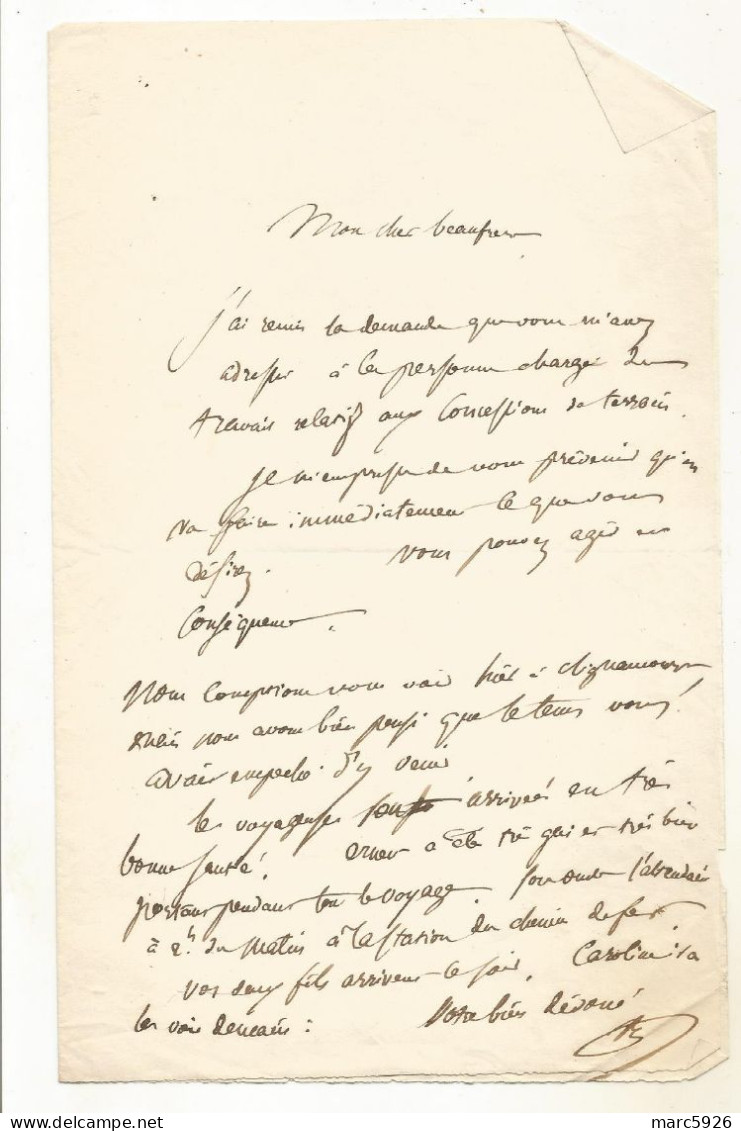 Mon cher beaufrere
J'ai remis la demande que vous m'avez
adressée à la personne chargée du
travail relatif aux Concessions de terrain.
Je m'empresse de vous prévenir qu'on
va faire immédiatement ce que vous
désirez. Vous pouvez agir en
Conséquence.
Nous comptions vous voir hier à Clignancourt
mais nous avons bien pensé que le tems vous
avait empeché d'y venir
les voyageuses sont arrivées en très
bonne santé. a été très gai et très bien
portant pendant tout le voyage. son oncle l'attendait
à 2h. du matin à la station du chemin de fer.
Vos deux fils arrivent ce soir. Caroline ira
les voir demain. Votre bien dévoué
marc5926